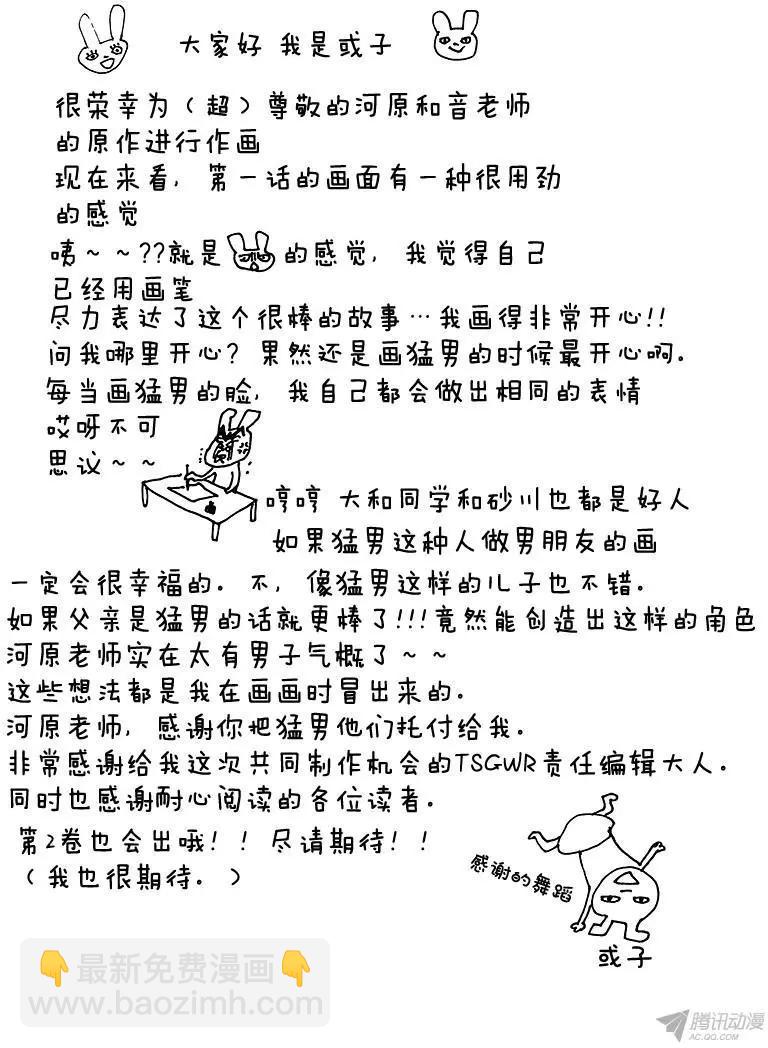 大家好 我是或子
很荣幸为(超)尊敬的河原和音老师
的原作进行作画
现在来看,第一话的画面有一种很用劲
的感觉
咦~~??就是的感觉,我觉得自己
已经用画笔
尽力表达了这个很棒的故事…我画得非常开心!!
问我哪里开心?果然还是画猛男的时候最开心啊。
每当画猛男的脸,我自己都会做出相同的表情
哎呀不可
思议~~
哼哼 大和同学和砂川也都是好人
如果猛男这种人做男朋友的画
一定会很幸福的。不,像猛男这样的儿子也不错。
如果父亲是猛男的话就更棒了!!!竟然能创造出这样的角色
河原老师实在太有男子气概了~~
这些想法都是我在画画时冒出来的。
河原老师,感谢你把猛男他们托付给我。
非常感谢给我这次共同制作机会的TSGWR责任编辑大人。
同时也感谢耐心阅读的各位读者。
第2卷也会出哦!!尽请期待!!
(我也很期待。)
感谢的舞蹈
或子
👇最新免费漫画👇
www.baozimh.com
腾讯动漫
AC.QQ.COM